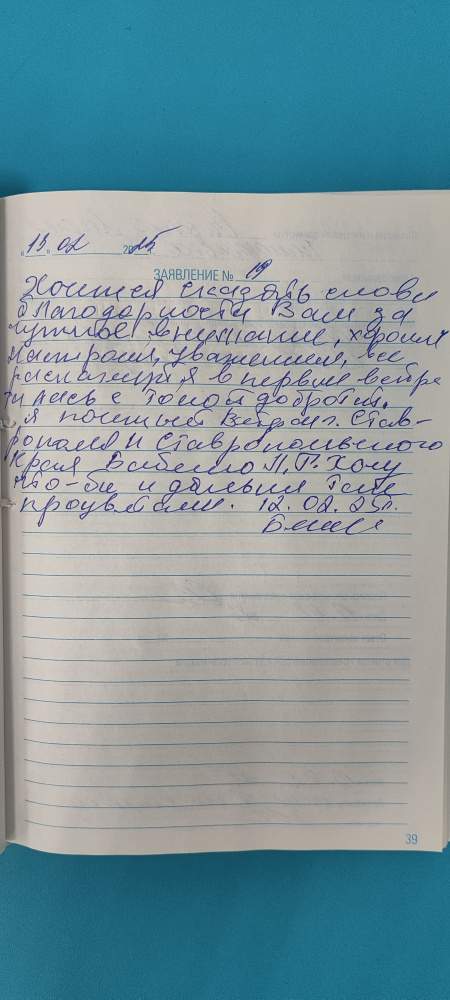 "13" 02 2025
ЗАЯВЛЕНИЕ № 19
Хочится сказать слова
благодарности Вам за
внимание, хороший
настроий, уважением, все
я в первые встре
тилась с такой добротой.
я Ветран г. Став-
рополя и Ставропольского
Края Бабенко Л. Г. Хочу
что-бы и дальше Так
процветали. 12. 02. 25г.
39